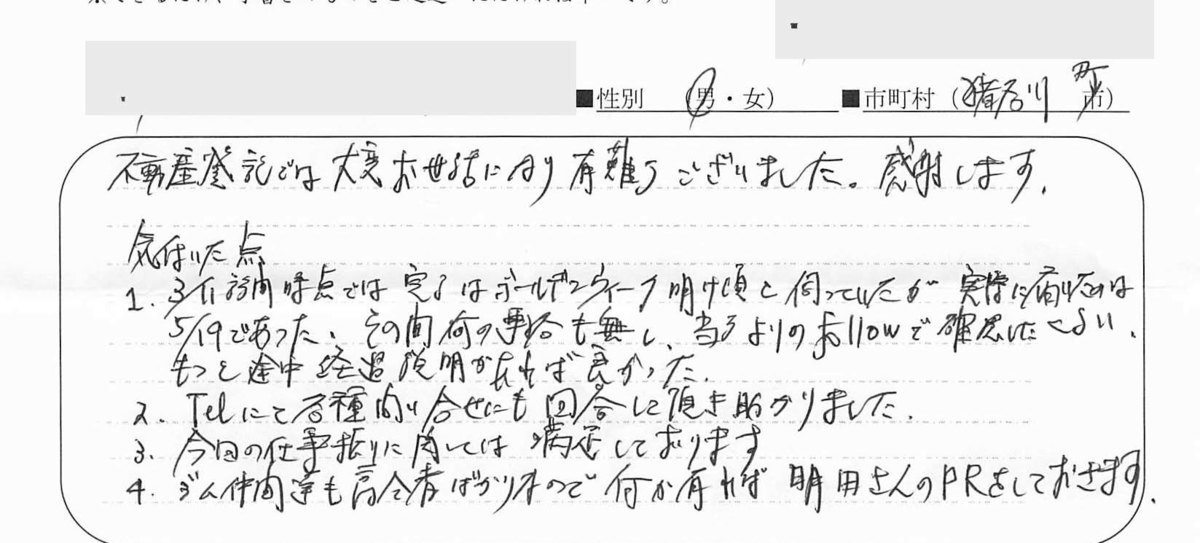 ■性別 (男・女) ■市町村 (猪名川町 市)
不動産登記では大変お世話になり有難うございました。感謝します.
気付いた点
1. 3/11訪問時点では完了はゴールデンウィーク明け頃と伺っていたが実際に届いたのは
5/19であった、その間何の連絡も無し、当方よりのfollowで確認した
もっと途中経過説明があれば良かった.
2. Telにて各種問い合せにも回答して頂き助かりました.
3. 今回の仕事振りに関しては満足しております
4. ジム仲間達も高令者ばかりなので何か有れば明田さんのPRをしておきます.